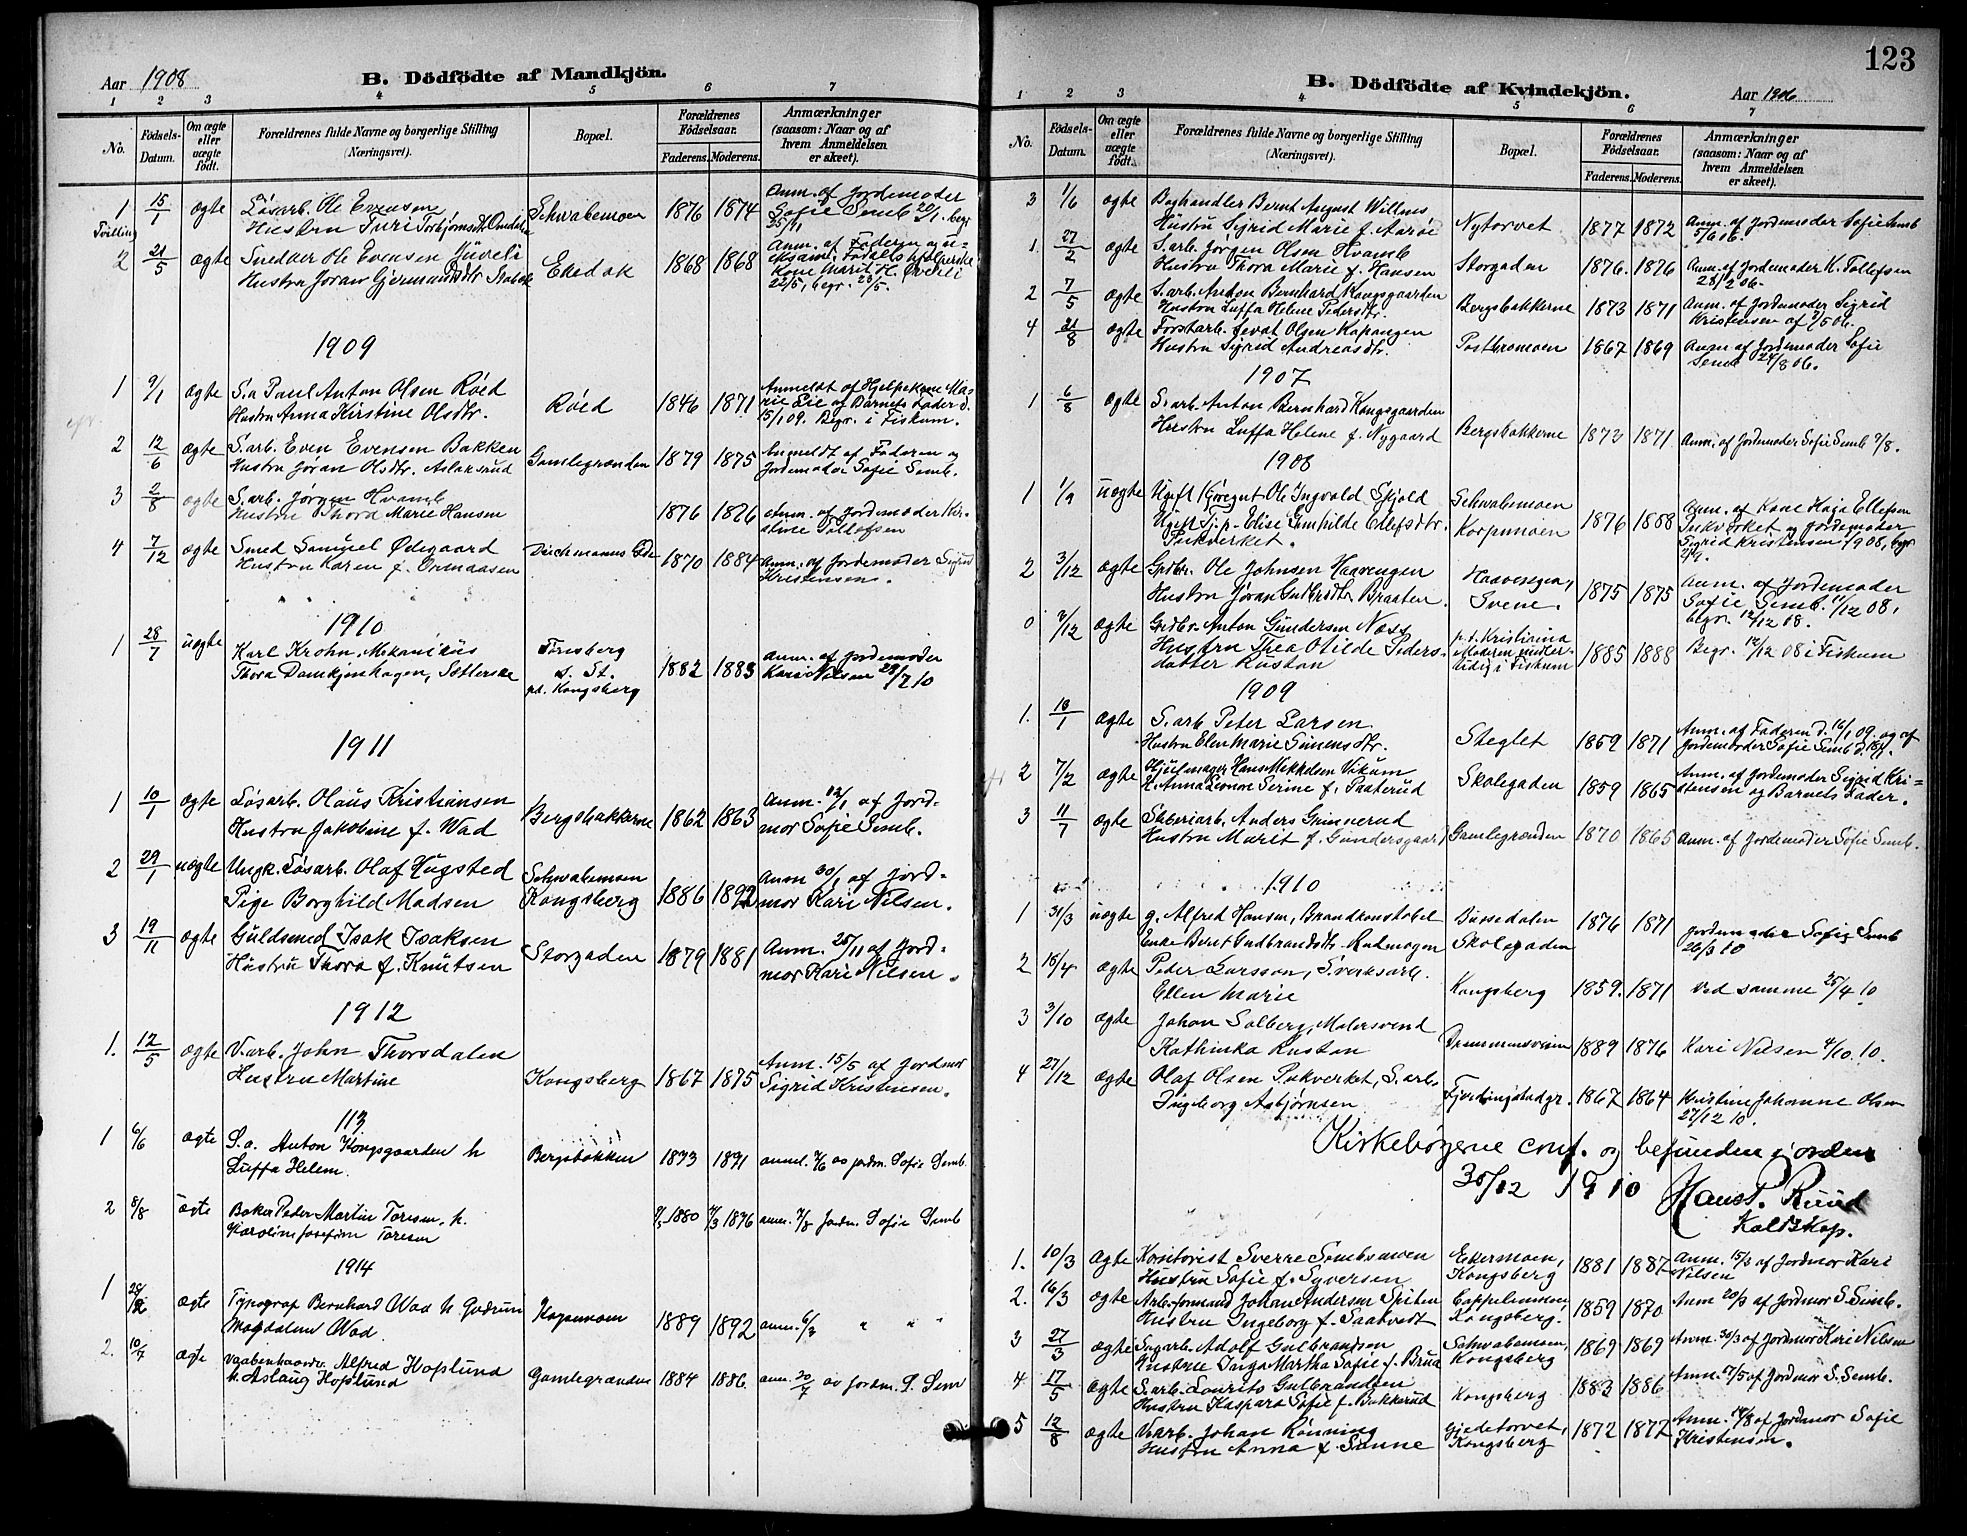 Aar 1908
B. Dödfödte af Mandkjön.
1 2 3 4 5 6 7
No.
Födsels-Datum.
Om ægte eller uægte födt.
Forældrenes fulde Navne og borgerlige Stilling (Næringsvei).
Bopæl.
Forældrenes Födselsaar.
Faderens. Moderens.
Anmærkninger (saasom: Naar og af hvem Anmeldelsen er skeet).
1 15/1 ægte Løsarb. Ole Evensen Schwabemoen 1876 1874 Anm. af Jordemoder
Tvilling Hustru Turi Sofie Semb 22/1. begr.
2 21/5 ægte Snedker Ole Evensen Juveli Ekedok 1868 1868 Anm. af Faderen
Hustru Joran
22/5, begr. 28/5.
1909
1 9/1 ægte S.a Paul Anton Olsen Røed Røed 1846 1871 Anmeldt af Hjelpekone Ma-
Hustru Anna Kirstine Olsdtr. rie Lie af Barnets Fader d.
15/1 09. Begr. i Fiskum.
2 12/6 ægte S.arb. Even Evensen Bakken Gamlegrænden 1879 1875 Anmeldt af Faderen og
Hustru Jøran Olsdtr. Aslaksrud Jordemoder Sofie Semb.
3 2/8 ægte S.arb. Jørgen Hvamb 1876 1876 Anm. af Jordemoder Kir-
Hustru Thora Marie Hansen stine Tollefsen
4 7/12 ægte Smed Samuel Ødegaard 1870 1884 Anm. af Jordemoder Sigrid
Hustru Karen f. Ormaasen Kristensen.
1910
1 28/7 uægte Karl Krohn, Mekanikus Tønsberg 1882 1883 Anm. af Jordemoder
Thora s. St. Kari Nilsen 28/7 10
pt. Kongsberg
1911
1 10/1 ægte Løsarb. Olaus Kristiansen Bergsbakkerne 1862 1863 Anm. 12/1 af Jord-
Hustru Jakobine f. Wad mor Sofie Semb.
2 29/1 uægte Ungk. Løsarb. Olaf Hugsted Schwabemoen 1886 1892 Anm 30/1 af Jord-
Pige Borghild Madsen Kongsberg mor Kari Nilsen.
3 19/11 ægte Guldsmed Isak Isaksen Storgaden 1879 1881 Anm. 25/11 af Jord-
Hustru Thora f. Knutsen mor Kari Nilsen.
1912
1. 12/5 ægte V.arb. John Thorsdalen Kongsberg 1867 1875 Anm. 15/5 af Jordmor
Hustru Martine Sigrid Kristensen.
113
1 6/6 ægte S.a. Anton Kongsgaarden h Bergsbakken 1873 1891 anmel. 7/6 av jordm. Sofie Semb.
Luffa Helene.
2 8/8 ægte Baker Peder Martin Toresen, h. 1880 1876 anm. 9/8 Jordm. Sofie Semb
Karoline Josefine Toresen
1914
1 ægte Typograf Bernhard Wad h. Gudrun Kapermoen 1889 1892 anm. 6/3 " " "
Magdalene Wad.
2. 10/7 ægte Alfred Hoplund Gamlegrænden 1884 1886. anm. 20/7 av Jordm. S. Sem
h. Aslaug Hoplund
123
B. Dödfödte af Kvindekjön.
Aar 1906
1 2 3 4 5 6 7
No.
Födsels-Datum.
Om ægte eller uægte födt.
Forældrenes fulde Navne og borgerlige Stilling (Næringsvei).
Bopæl.
Forældrenes Födselsaar.
Faderens. Moderens.
Anmærkninger (saasom: Naar og af hvem Anmeldelsen er skeet).
3 1/6 ægte Boghandler Bernt August Willnes Nytorvet 1877 1872 Anm. af Jordemoder Sofie Semb
Hustru Sigrid Marie f. Aarøe 5/6 06.
1. 27/2 ægte S.arb. Jørgen Olsen Hvamb Storgaden 1876. 1876 Anm. af Jordemoder K. Tollefsen
Hustru Thora Marie f. Hansen 28/2 06.
2 7/5 ægte S.arb. Anton Bernhard Kongsgaarden Bergsbakkerne 1873 1871 Anm. af Jordemoder Sigrid
Hustru Luffa Helene Pedersdtr. Kristensen
4 21/8 ægte Forstarb. Olsen Kapongen 1867 1869 Anm af Jordemoder Sofie
Hustru Sigrid Andreasdtr. Semb 24/8 06.
1907
1 6/8 ægte S.arb. Anton Bernhard Kongsgaarden Bergsbakkerne 1873 1871 Anm. af Jordemoder Sofie Semb 7/8.
Hustru Luffa Helene f. Nygaard
1908
1 1/9 uægte Ugift Ole Ingvald Skjold Schwabemoen 1876 1888 Anm. af Kone Haga Ellefsen
Ugift Tj.p. Elise Gunhilde Ellefsdtr. Korpemoen Pukverket og Jordemoder
Pukverket. Sigrid Kristensen
2 3/12 ægte Grdbr. Ole Johnsen Haavengen Haavengen, 1875 1875 Anm. af Jordemoder
Hustru Jøran Gudbrdtr. Braaten. Svene. Sofie Semb. 11/12 08,
begr. 12/12 08.
0 7/12 ægte Grdbr. Anton Gundersen Næss p.t. Kristiania 1885 1888 Begr. 12/12 08 i Fiskum
Hustru Thea Otilde Peders- Moderen midler-
datter Ruston tidig i Fiskum
1909
1. 10/1 ægte S.arb Peter Larsen Steglet 1859 1871 Anm. af Faderen d. 16/1 09. og af
Hustru Elen Marie Simensdtr. Jordemoder Sofie Semb
2 7/2 ægte Hjulmager Hans Mikkelsen Vikum Skolegaden 1859 1865 Anm. af Jordemoder Sigrid Kri-
H. Anna Leonore Serine f. Paaterud stensen og Barnets Fader.
3 11/7 ægte Skberiarb. Anders Grinnerud Gamlegrænden 1870 1865 Anm. af Jordemoder Sofie Semb.
Hustru Marit f. Gundersgaard
1910
1 31/3 uægte g. Alfred Hansen, Brandkonstabel Bussedalen 1876 1871 Jordemoder Sofie Semb
Enke Berit Gudbrandsdtr. Skolegaden 26/3 10
2 18/4 ægte Peder Larsson, S.verksarb. Kongsberg 1859. 1871 Ved samme 25/4 10
Ellen Marie
3 3/10 ægte Johan Solberg, Malersvend 1889 1876 Kari Nilsen 4/10 10.
Kathinka Ruston
4 27/12 ægte Olaf Olsen Pukverket, S.arb. Fjerdingstadgr. 1867 1864 Kristine Johanne Olsen
Ingeborg Asbjørnsen 27/12 10.
Kirkebøgerne conf. og befunden i orden
30/12 1910 Hans P. Ruud
Kaldskap.
1. 10/3 ægte Kontorist Sverre Sembsmoen Eekermoen, 1881 1887 Anm. 15/3 af Jordmor Kari
Hustru Sofie f. Syversen Kongsberg Nilsen
2. 16/3 ægte Arb.formand Johan Andersen Spiten Cappelenmoen, 1859 1870 Anm 20/3 af Jordmor S. Semb.
Hustru Ingeborg f. Saatvedt Kongsberg.
3 27/3 ægte Sagarb. Adolf Gulbrandsen Schwabemoen, 1869 1869 Anm. 30/3 af Jordmor Kari Nilsen
Hustru Inga Martha Sofie f. Brua Kongsberg
4 17/5 ægte S.arb. Laurits Gulbrandsen Kongsberg 1883 1886 Anm. af Jordmor S. Semb.
Hustru Kaspara Sofie f. Bakkerud
5 12/8 ægte V.arb. Johan Rønning Gjedetorvet, 1872 1877 Anm. 14/8 af Jordmor Sofie
Hustru Anna f. Sunne Kongsberg Kristensen.